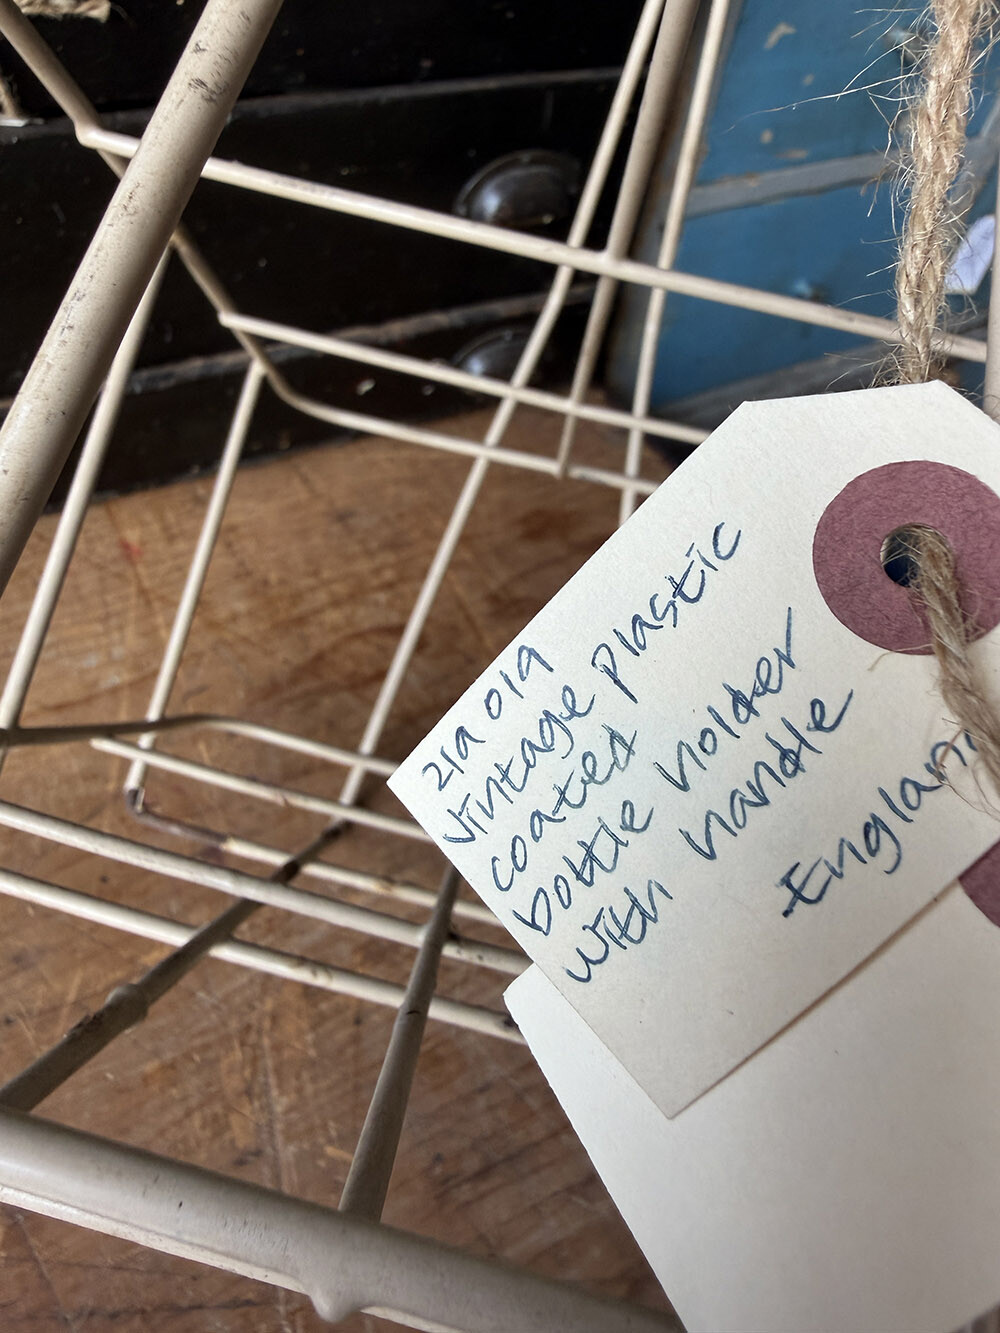 21a 019
vintage plastic
coated
bottle holder
with handle
England